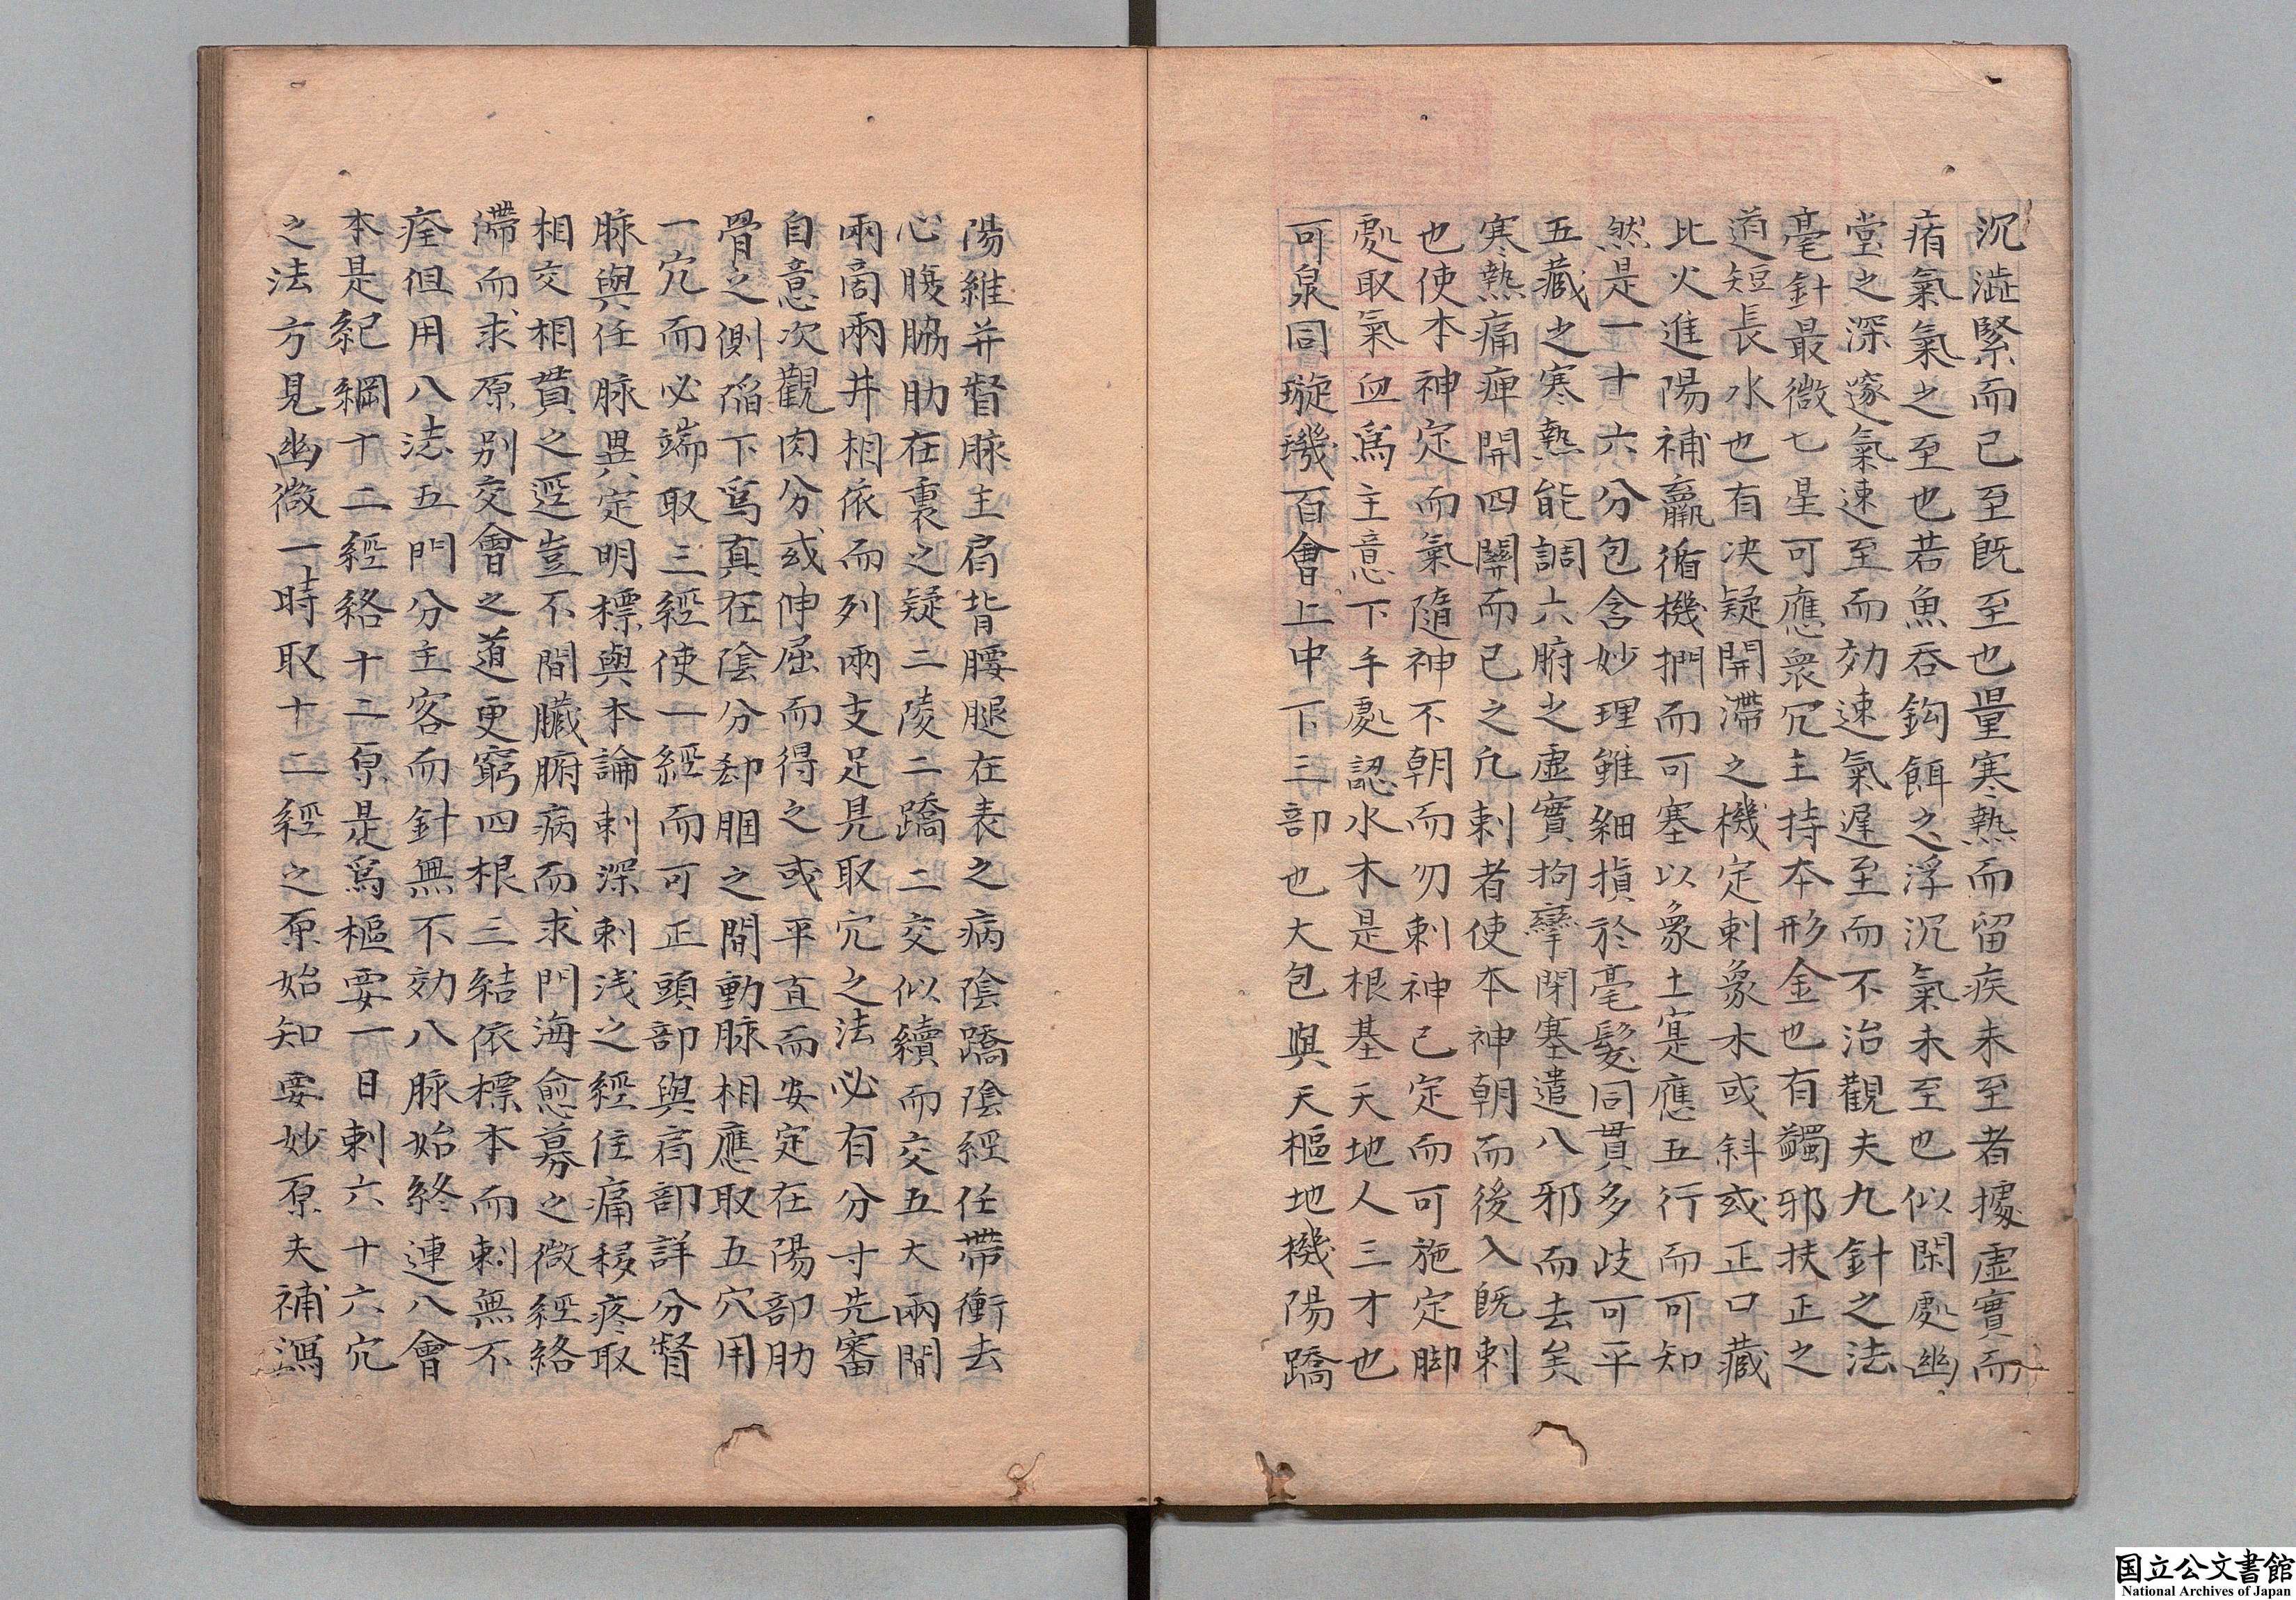 沉澁緊而已至既至也量寒熱而留疾未至者據虛實而
痏氣氣之至也若魚吞鈎餌之浮沉氣未至也似閑處幽
堂之深邃氣速至而効速氣遲至而不治觀夫九針之法
毫針最微七星可應衆冗主持本形金也有蠲邪扶正之
道短長水也有决疑開滯之機定刺象木或斜或正口藏
比火進陽補羸循機捫而可塞以象土寔應五行而可知
然是一十六分包含妙理雖細損於毫髮同貫多歧可平
五藏之寒熱能調六腑之虛實拘攣閉塞遣八邪而去矣
寒熱痛痺開四關而已之凢刺者使本神朝而後入既刺
也使本神定而氣隨神不朝而勿刺神已定而可施定脚
處取氣血爲主意下手處認水木是根基天地人三才也
可泉同璇璣百會上中下三部也大包與天樞地機陽蹻
陽維并督脉主肩背腰腿在表之病陰蹻陰經任帶衝去
心腹脇肋在裏之疑二陵二蹻二交似續而交五大兩間
兩商兩井相依而列兩支足見取冗之法必有分寸先審
自意次觀肉分或伸屈而得之或平直而安定在陽部肋
骨之側䧟下爲真在陰分郄膕之間動脉相應取五穴用
一冗而必端取三經使一經而可正頭部與肩部詳分督
脉與任脉異定明標與本論刺深刺浅之經住痛移疼取
相交相貫之逕豈不聞臟腑病而求門海愈募之微經絡
滯而求原别交會之道更窮四根三結依標本而刺無不
痊但用八法五門分主客而針無不効八脉始終連八會
本是紀綱十二經絡十二原是爲樞要一日刺六十六冗
之法方見幽微一時取十二經之原始知要妙原夫補瀉
国立公文書館
National Archives of Japan